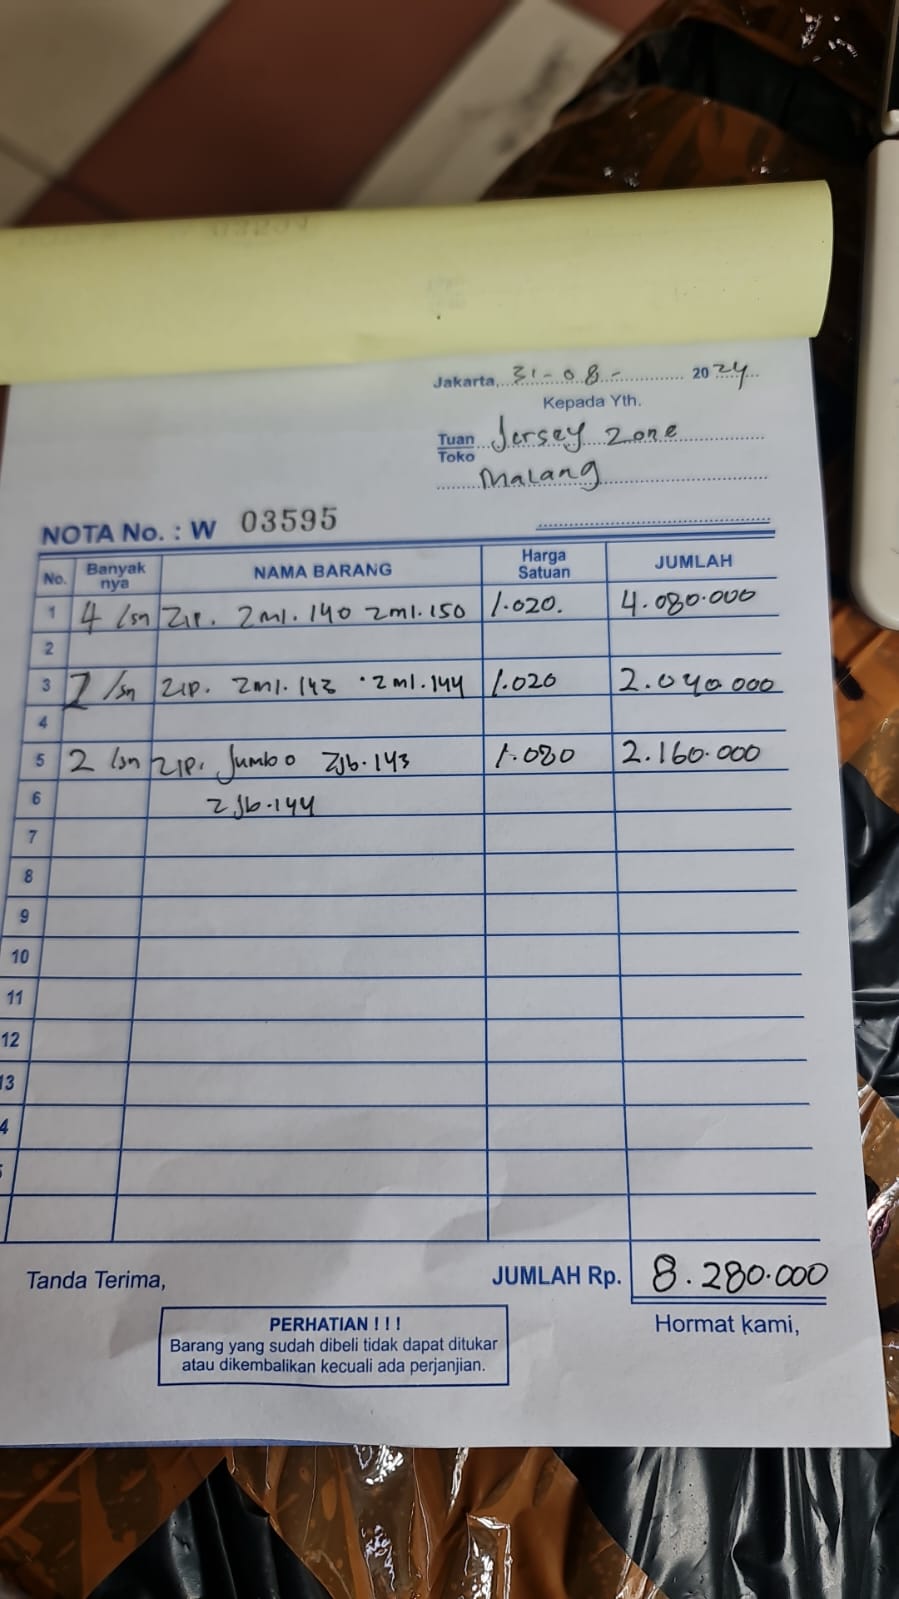 Jakarta, 31-08- 2024
Kepada Yth.
Tuan Jersey Zone
Toko
Malang
NOTA No. : W 03595
No. Banyak nya NAMA BARANG Harga Satuan JUMLAH
1 4 lsn ZIP. Zml. 140 Zml. 150 1.020. 4.080.000
2
3 2 lsn ZIP. Zml. 143 Zml. 144 1.020 2.040.000
4
5 2 lsn ZIP. Jumbo ZJb. 143 1.080 2.160.000
6 ZJb. 144
7
8
9
10
11
12
13
4
JUMLAH Rp. 8.280.000
Tanda Terima,
Hormat kami,
PERHATIAN ! ! !
Barang yang sudah dibeli tidak dapat ditukar
atau dikembalikan kecuali ada perjanjian.